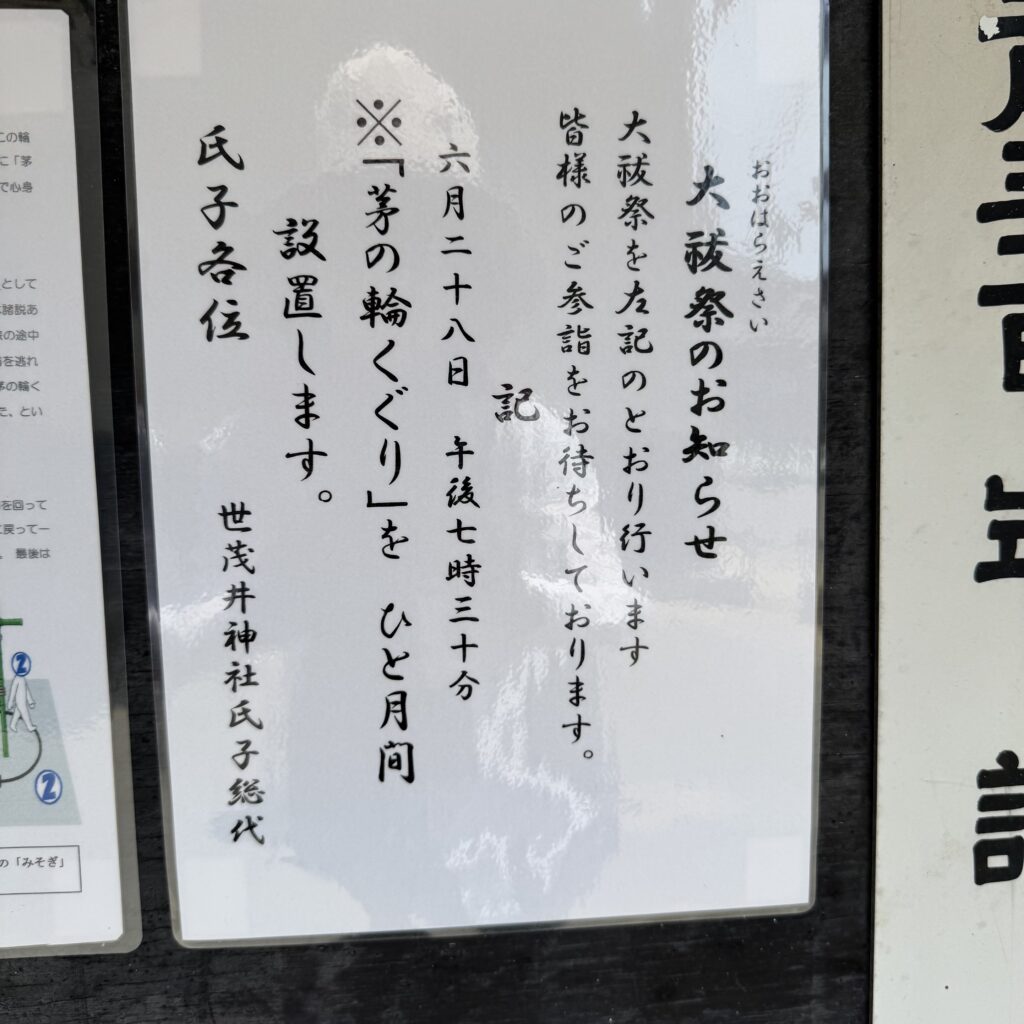 おおはらえさい
大祓祭のお知らせ
大祓祭を左記のとおり行います
皆様のご参詣をお待ちしております。
記
六月二十八日 午後七時三十分
※「茅の輪くぐり」を ひと月間
設置します。
氏子各位
世茂井神社氏子総代
この輪
に「茅
で心身
として
諸説あ
の途中
を逃れ
茅の輪く
た、とい
を回って
に戻って一
最後は
②
②
の「みそぎ」